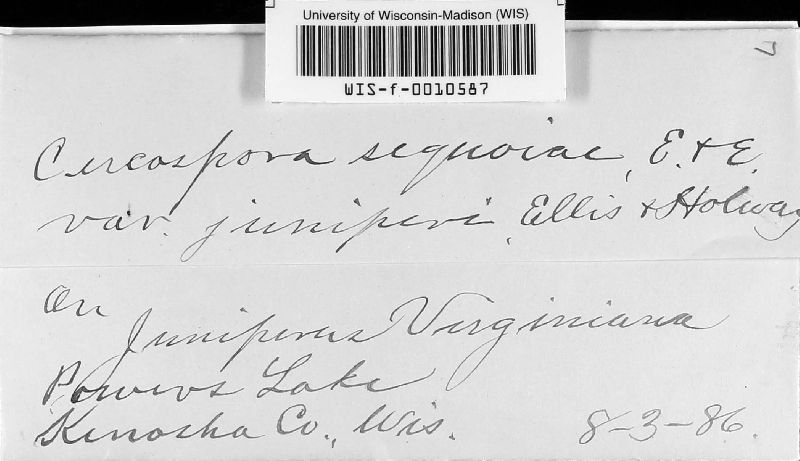 University of Wisconsin-Madison (WIS)
WIS-f-0010587
Cercospora sequoiae, E. & E.
var. juniperi, Ellis & Holway
On
Juniperus Virginiana
Powers Lake
Kenosha Co., Wis. 8-3-86.